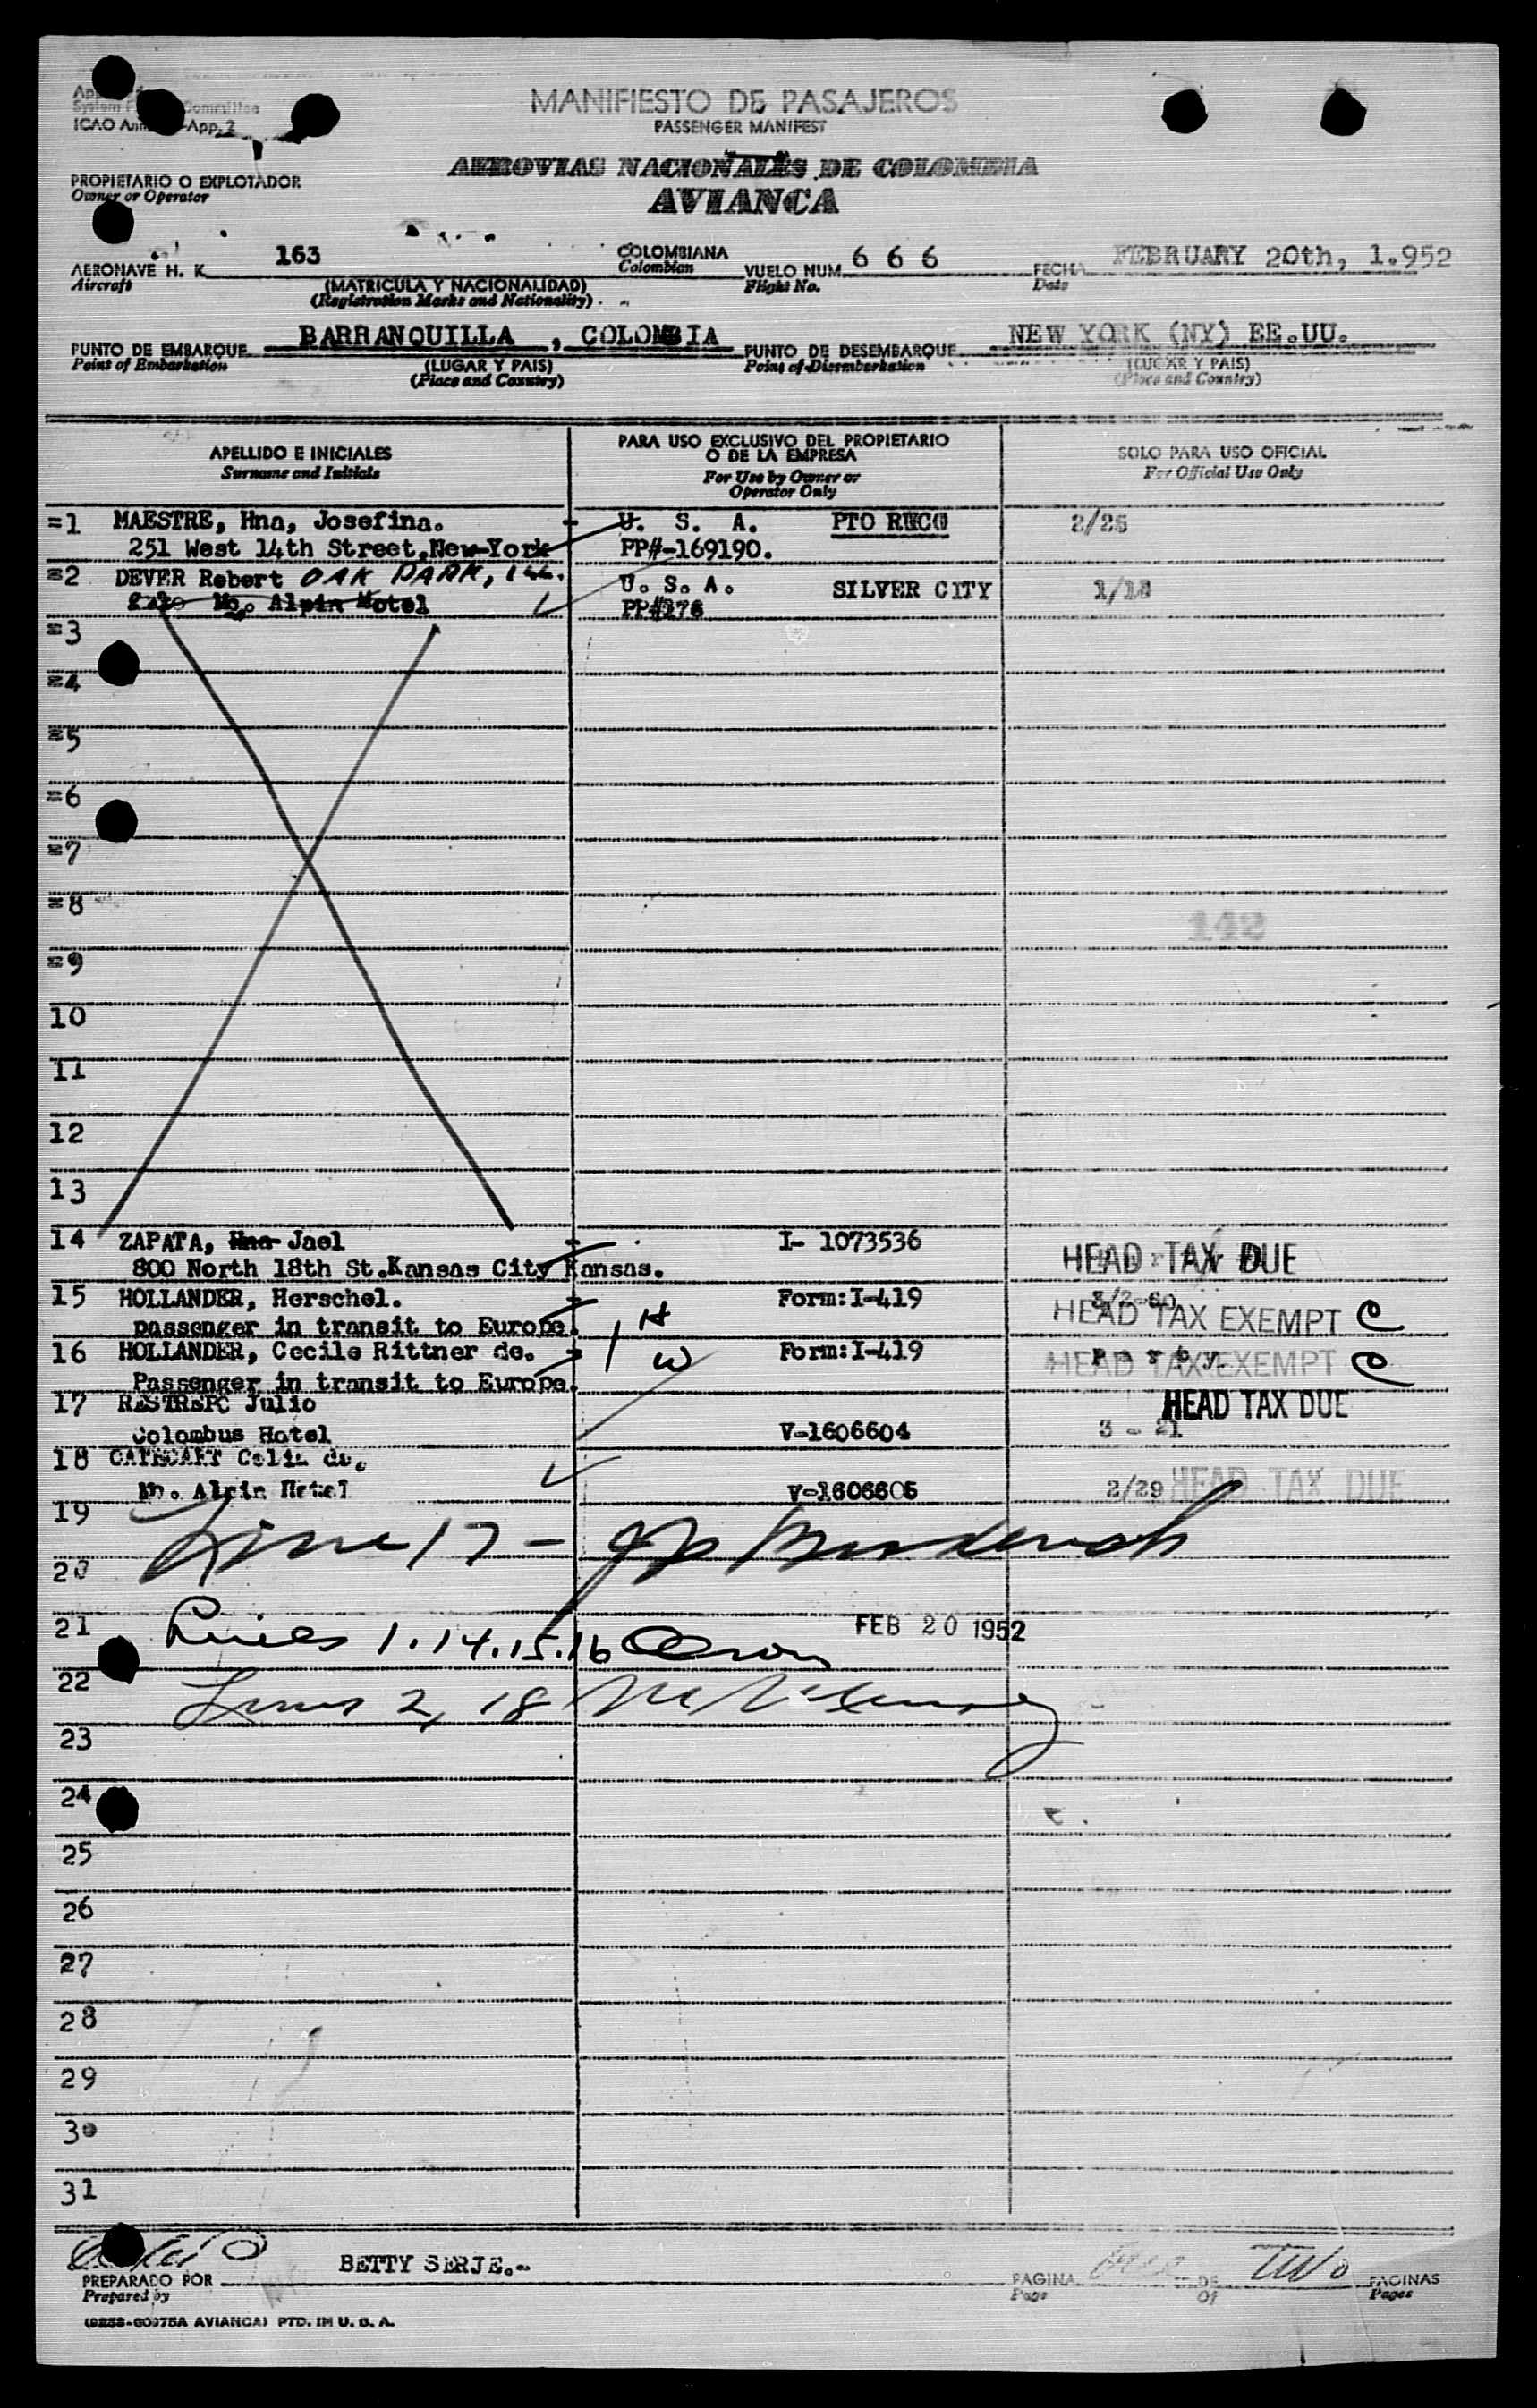 MANIFIESTO DE PASAJEROS
PASSENGER MANIFEST
Committee
ICAO App. 2
AEROVIAS NACIONALES DE COLOMBIA
AVIANCA
PROPIETARIO O EXPLOTADOR
Owner or Operator
AERONAVE H. K. 163 COLOMBIANA VUELO NUM. 6 6 6 FECHA FEBRUARY 20th, 1.952
Aircraft (MATRICULA Y NACIONALIDAD) Colombian Flight No. Date
(Registration Marks and Nationality)
PUNTO DE EMBARQUE BARRANQUILLA , COLOMBIA PUNTO DE DESEMBARQUE NEW YORK (NY) EE.UU.
Point of Embarkation (LUGAR Y PAIS) Point of Disembarkation (LUGAR Y PAIS)
(Place and Country) (Place and Country)
APELLIDO E INICIALES PARA USO EXCLUSIVO DEL PROPIETARIO O DE LA EMPRESA SOLO PARA USO OFICIAL
Surname and Initials For Use by Owner or Operator Only For Official Use Only
=1 MAESTRE, Hna, Josefina. U. S. A. PTO RICO 2/25
251 West 14th Street, New-York PP#-169190.
=2 DEVER Robert OAK PARK, ILL. U. S. A. SILVER CITY
Mc. Alpin Hotel PP#276
=3
=4
=5
=6
=7
=8
142
=9
10
11
12
13
14 ZAPATA, Hna Jael I- 1073536 HEAD TAX DUE
800 North 18th St. Kansas City Kansas.
15 HOLLANDER, Herschel. Form: I-419 3/2-60
passenger in transit to Europe. H HEAD TAX EXEMPT C
16 HOLLANDER, Cecile Rittner de. W Form: I-419 HEAD TAX EXEMPT C
Passenger in transit to Europe.
17 RESTREPO Julio HEAD TAX DUE
Colombus Hotel V-1606604 3 - 21
18 CATHCART Celia de.
Mc. Alpin Hotel V-1606605 2/29 HEAD TAX DUE
19
Line 17 -
20
21 Lines 1.14.15.16 FEB 20 1952
22 Lines 2, 18
23
24
25
26
27
28
29
30
31
PREPARADO POR BETTY SERJE.- PAGINA DE Two PAGINAS
Prepared by Page Of Pages
(9258-60975A AVIANCA) PTD. IN U. S. A.